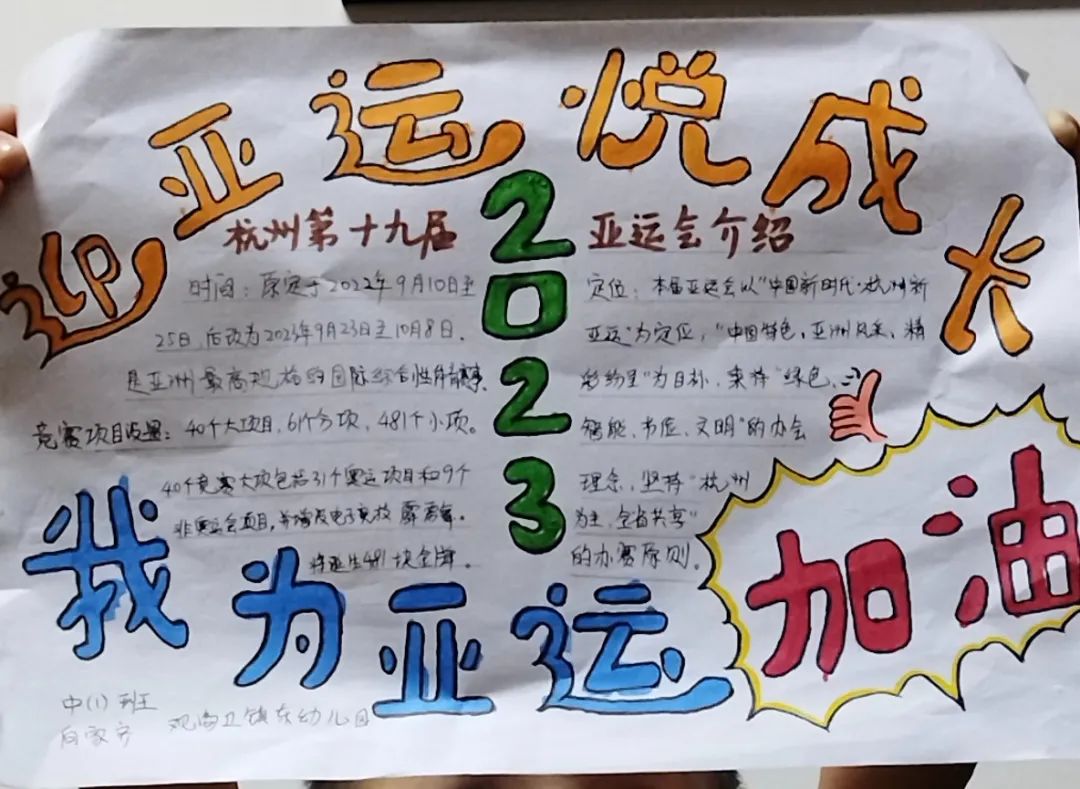 迎亚运悦成长
杭州第十九届
2023
亚运会介绍
时间：原定于2022年9月10日至
25日，后改为2023年9月23日至10月8日．
是亚洲最高规格的国际综合性体育赛事．
竞赛项目设置：40个大项目，61个分项，481个小项。
40个竞赛大项包括31个奥运项目和9个
非奥运会项目，并增设电子竞技 霹雳舞。
将诞生481块金牌．
定位：本届亚运会以“中国新时代·杭州新
亚运”为定位，“中国特色，亚洲风采，精
彩纷呈”为目标，秉持“绿色、
智能、节俭、文明”的办会
理念，坚持“杭州
为主，全省共享”
的办赛原则。
我为亚运
加油
中(1)班
观海卫镇东幼儿园